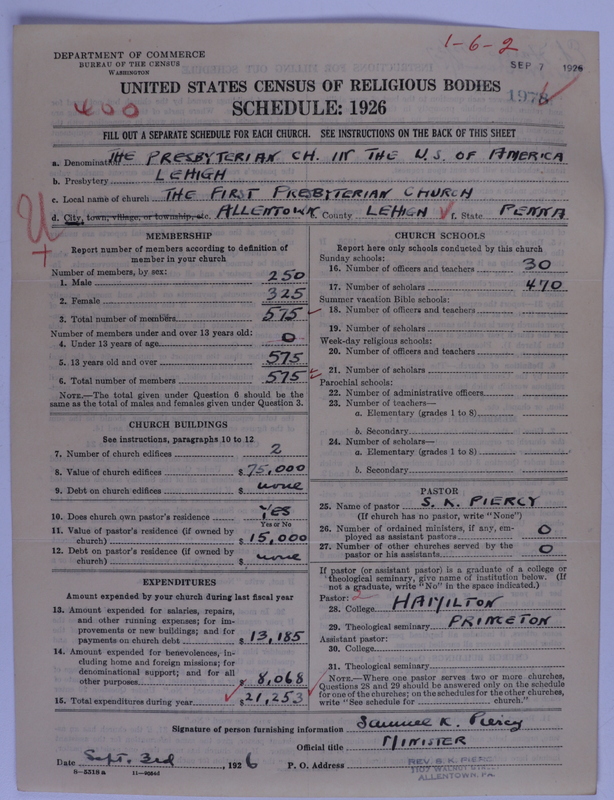 1-6-2
DEPARTMENT OF COMMERCE
BUREAU OF THE CENSUS
WASHINGTON
SEP 7 1926
UNITED STATES CENSUS OF RELIGIOUS BODIES
1978
SCHEDULE: 1926
400
FILL OUT A SEPARATE SCHEDULE FOR EACH CHURCH. SEE INSTRUCTIONS ON THE BACK OF THIS SHEET
a. Denomination THE PRESBYTERIAN CH. IN THE U.S. OF AMERICA
b. Presbytery LEHIGH
c. Local name of church THE FIRST PRESBYTERIAN CHURCH
d. City, town, village, or township, etc. ALLENTOWN County LEHIGH f. State PENNA
MEMBERSHIP
Report number of members according to definition of
member in your church
Number of members, by sex:
1. Male 250
2. Female 325
3. Total number of members 575
Number of members under and over 13 years old:
4. Under 13 years of age 0
5. 13 years old and over 575
6. Total number of members 575
NOTE.—The total given under Question 6 should be
same as the total of males and females given under Question 3.
CHURCH BUILDINGS
See instructions, paragraphs 10 to 12
7. Number of church edifices 2
8. Value of church edifices $75,000
9. Debt on church edifices $ none
10. Does church own pastor's residence Yes
Yes or No
11. Value of pastor's residence (if owned by
church) $15,000
12. Debt on pastor's residence (if owned by
church) $ none
EXPENDITURES
Amount expended by your church during last fiscal year
13. Amount expended for salaries, repairs,
and other running expenses; for im-
provements or new buildings; and for
payments on church debt $13,185
14. Amount expended for benevolences, in-
cluding home and foreign missions; for
denominational support; and for all
other purposes $8,068
15. Total expenditures during year $21,253
CHURCH SCHOOLS
Report here only schools conducted by this church
Sunday schools:
16. Number of officers and teachers 30
17. Number of scholars 470
Summer vacation Bible schools:
18. Number of officers and teachers
19. Number of scholars
Week-day religious schools:
20. Number of officers and teachers
21. Number of scholars
Parochial schools:
22. Number of administrative officers
23. Number of teachers—
a. Elementary (grades 1 to 8)
b. Secondary
24. Number of scholars—
a. Elementary (grades 1 to 8)
b. Secondary
PASTOR
25. Name of pastor S. K. PIERCY
(If church has no pastor, write "None")
26. Number of ordained ministers, if any, em-
ployed as assistant pastors 0
27. Number of other churches served by the
pastor or his assistants 0
If pastor (or assistant pastor) is a graduate of a college or
theological seminary, give name of institution below. (If
not a graduate, write "No" in the space indicated.)
Pastor:
28. College HAMILTON
29. Theological seminary PRINCETON
Assistant pastor:
30. College
31. Theological seminary
NOTE.—Where one pastor serves two or more churches,
Questions 28 and 29 should be answered only on the schedule
for one of the churches; on the schedules for the other churches,
write "See schedule for church."
Signature of person furnishing information Samuel K. Piercy
Official title MINISTER
Date Sept. 3rd, 1926 P. O. Address REV. S. K. PIERCY
ALLENTOWN, PA.
8-5318a